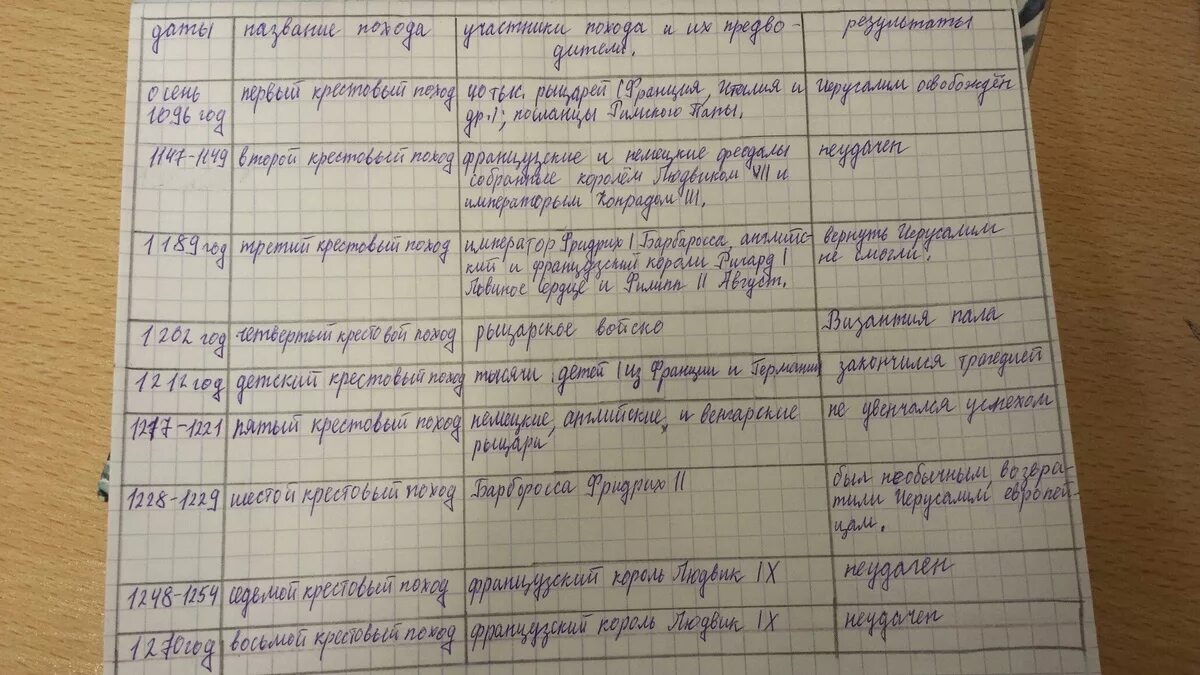 даты название похода участники похода и их предво- результаты
дители.
осень первый крестовый поход 40 тыс. рыцарей (Франция, Италия и Иерусалим освобождён
1096 год др.); посланцы Римского Папы.
1147-1149 второй крестовый поход французские и немецкие феодалы неудачен
собранные королём Людвиком VII и
императорым Конрадом III.
1189 год третий крестовый поход император Фридрих I Барбаросса, английс- вернуть Иерусалим
кий и французский короли Ричард I не смогли.
Львиное Сердце и Филипп II Август.
1202 год четвертый крестовой поход рыцарское войско Византия пала
1212 год детский крестовый поход тысячи детей (из Франции и Германии закончился трагедией
1217-1221 пятый крестовый поход немецкие, английские, и венгарские не увенчался успехом
рыцари
1228-1229 шестой крестовый поход Барборосса Фридрих II был необычным возвра-
тили Иерусалим европей-
цам.
1248-1254 седьмой крестовый поход французский король Людвик IX неудачен
1270 год восьмой крестовый поход французский король Людвик IX неудачен